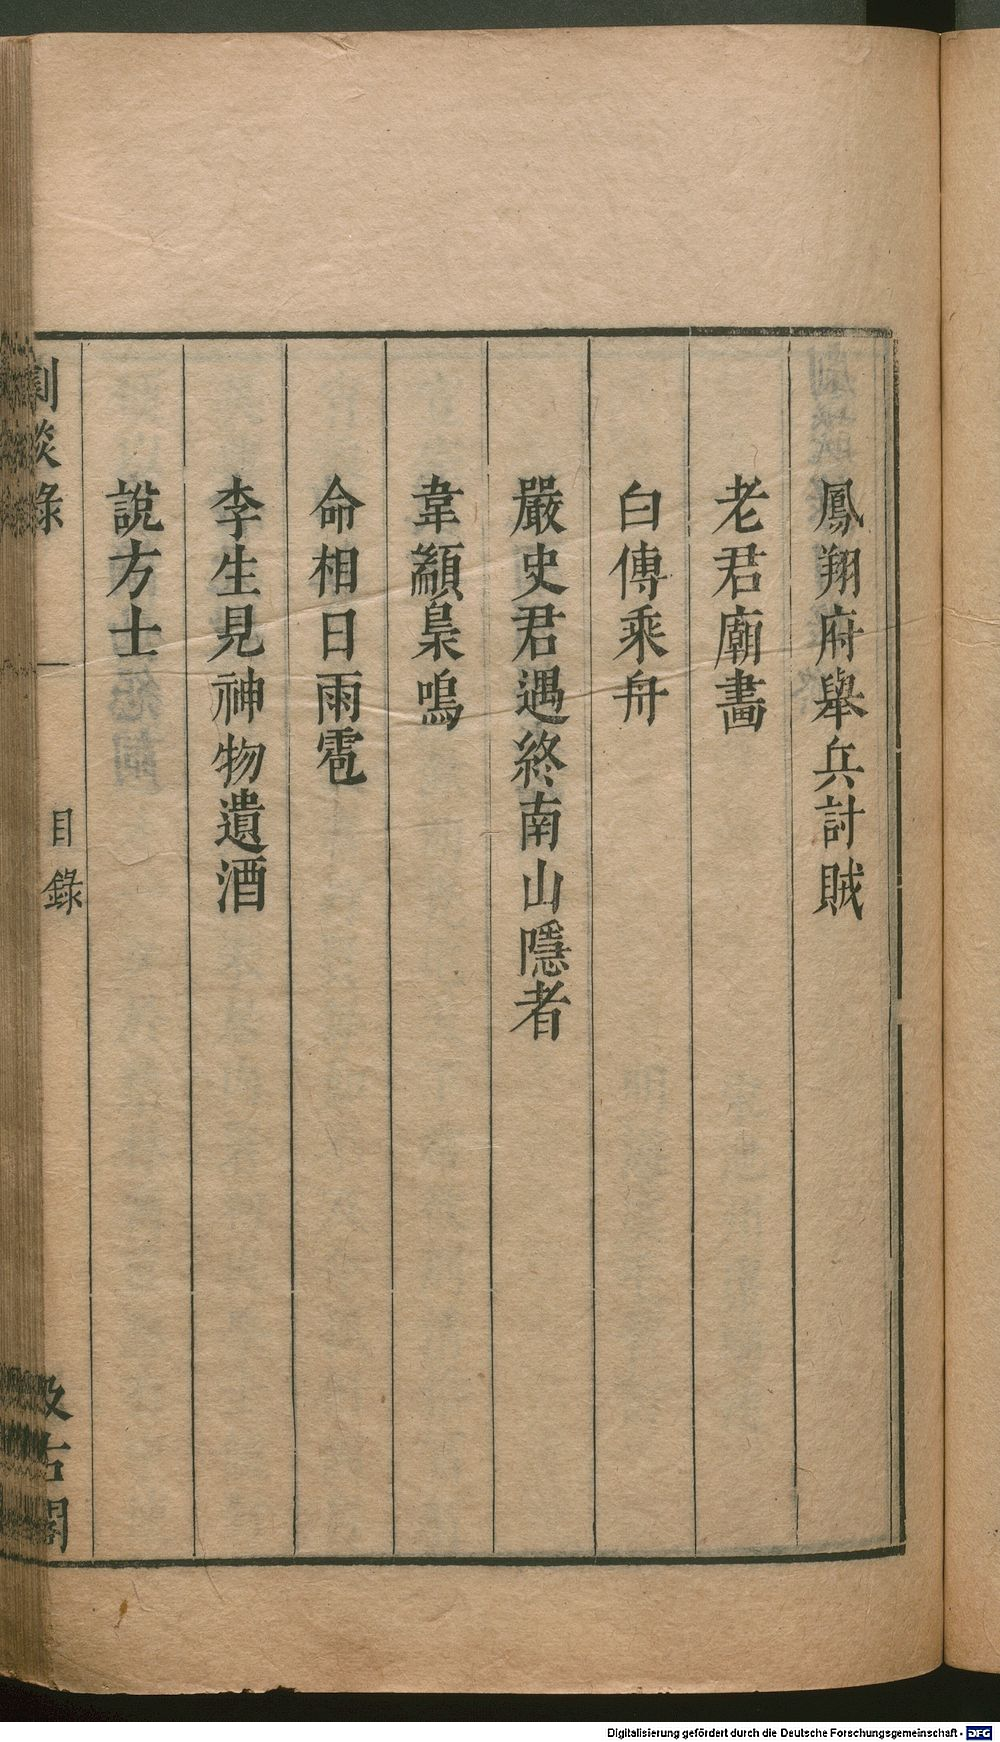 鳳翔府舉兵討賊
老君廟畫
白傳乘舟
嚴史君遇終南山隱者
韋顓梟鳴
命相日雨雹
李生見神物遺酒
說方士
劇談錄
目錄
汲古閣
Digitalisierung gefördert durch die Deutsche Forschungsgemeinschaft - DFG